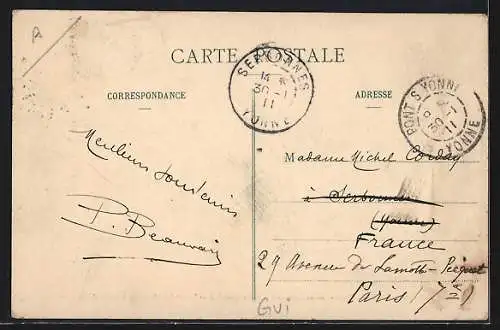 A
CARTE POSTALE
CORRESPONDANCE
ADRESSE
SERBONNES
14 *
30 -1
11
YONNE
PONT S YONNE
30 -1
11
YONNE
Meilleurs souvenirs
P. Beauvais
Madame Michel
à Serbonnes
(Yonne)
France
29 Avenue de Lamotte-Picquet
Paris 7
GUI